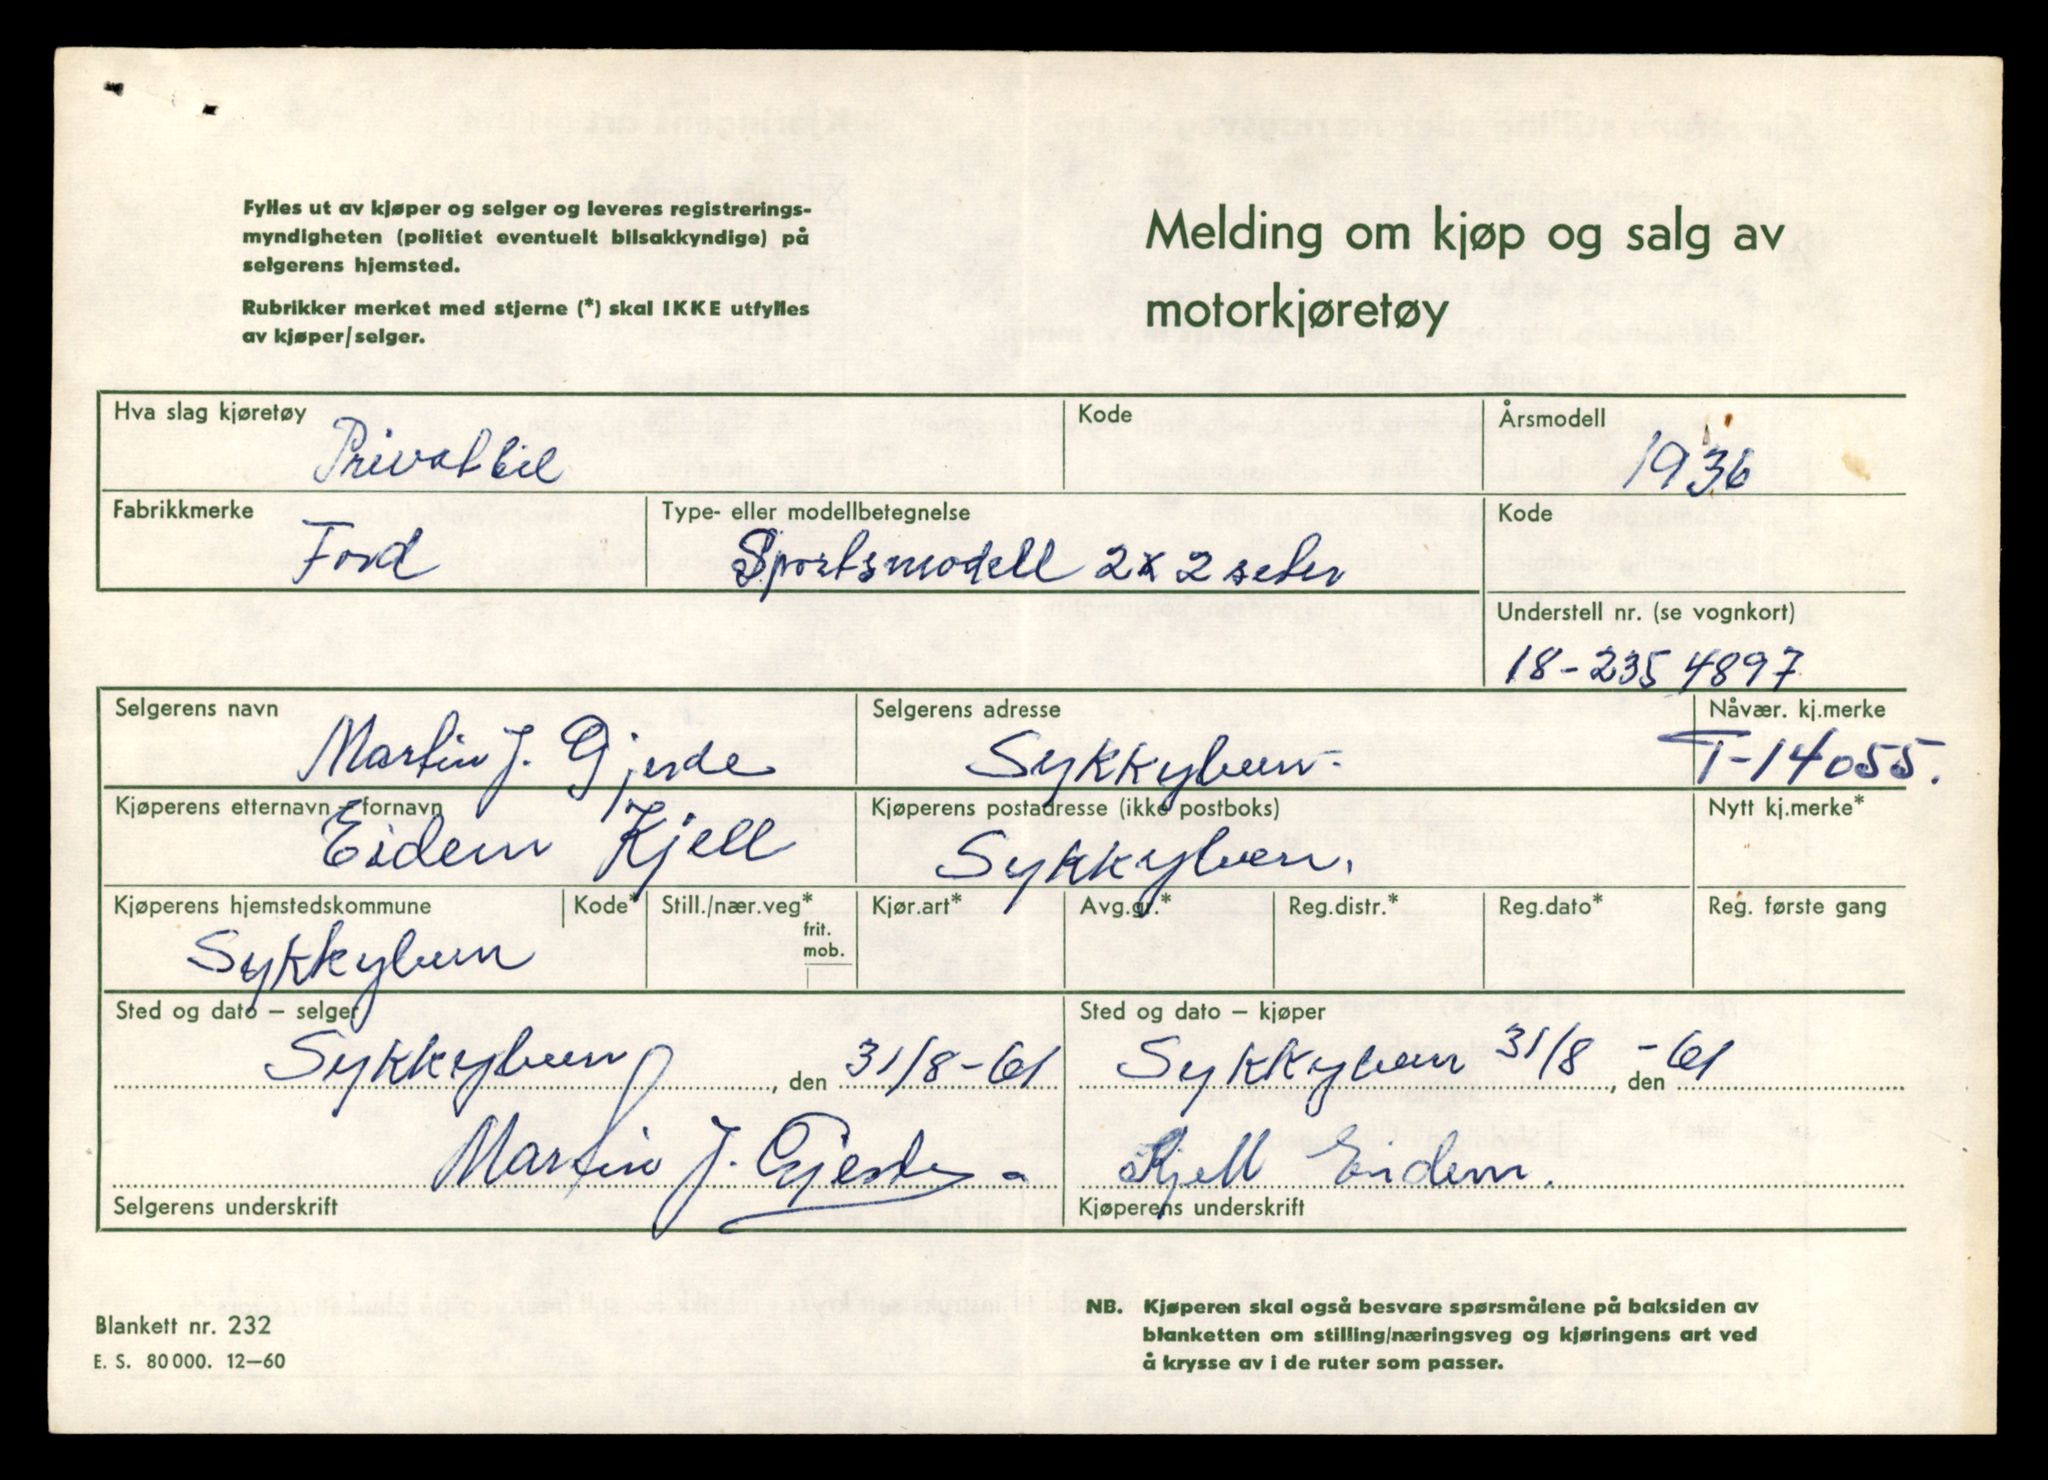 Fylles ut av kjøper og selger og leveres registrerings-
myndigheten (politiet eventuelt bilsakkyndige) på
selgerens hjemsted.
Rubrikker merket med stjerne (*) skal IKKE utfylles
av kjøper/selger.
Melding om kjøp og salg av
motorkjøretøy
Hva slag kjøretøy Kode Årsmodell
Privatbil 1936
Fabrikkmerke Type- eller modellbetegnelse Kode
Ford Sportsmodell 2x2 seter
Understell nr. (se vognkort)
18-235 4897
Selgerens navn Selgerens adresse Nåvær. kj.merke
Martin J. Gjerde Sykkylven- T-14055.
Kjøperens etternavn - fornavn Kjøperens postadresse (ikke postboks) Nytt kj.merke*
Eidem Kjell Sykkylven.
Kjøperens hjemstedskommune Kode* Still./nær.veg* Kjør.art* Avg.gr.* Reg.distr.* Reg.dato* Reg. første gang
frit.
mob.
Sykkylven
Sted og dato – selger Sted og dato – kjøper
Sykkylven, den 31/8-61 Sykkylven 31/8, den -61
Martin J. Gjerde Kjell Eidem.
Selgerens underskrift Kjøperens underskrift
Blankett nr. 232
E. S. 80 000. 12—60
NB. Kjøperen skal også besvare spørsmålene på baksiden av
blanketten om stilling/næringsveg og kjøringens art ved
å krysse av i de ruter som passer.